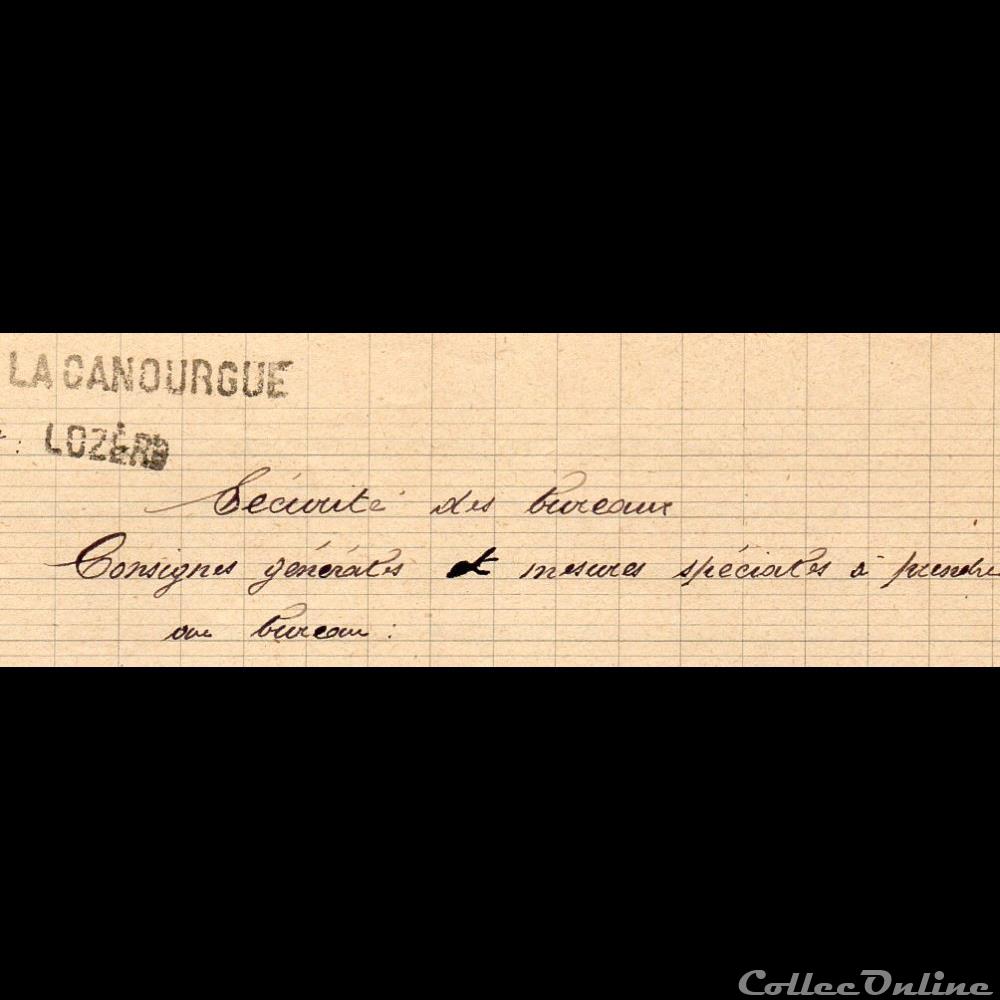 LA CANOURGUE
LOZÈRE
Sécurité des bureaux
Consignes générales et mesures spéciales à prendre
au bureau :
CollecOnline